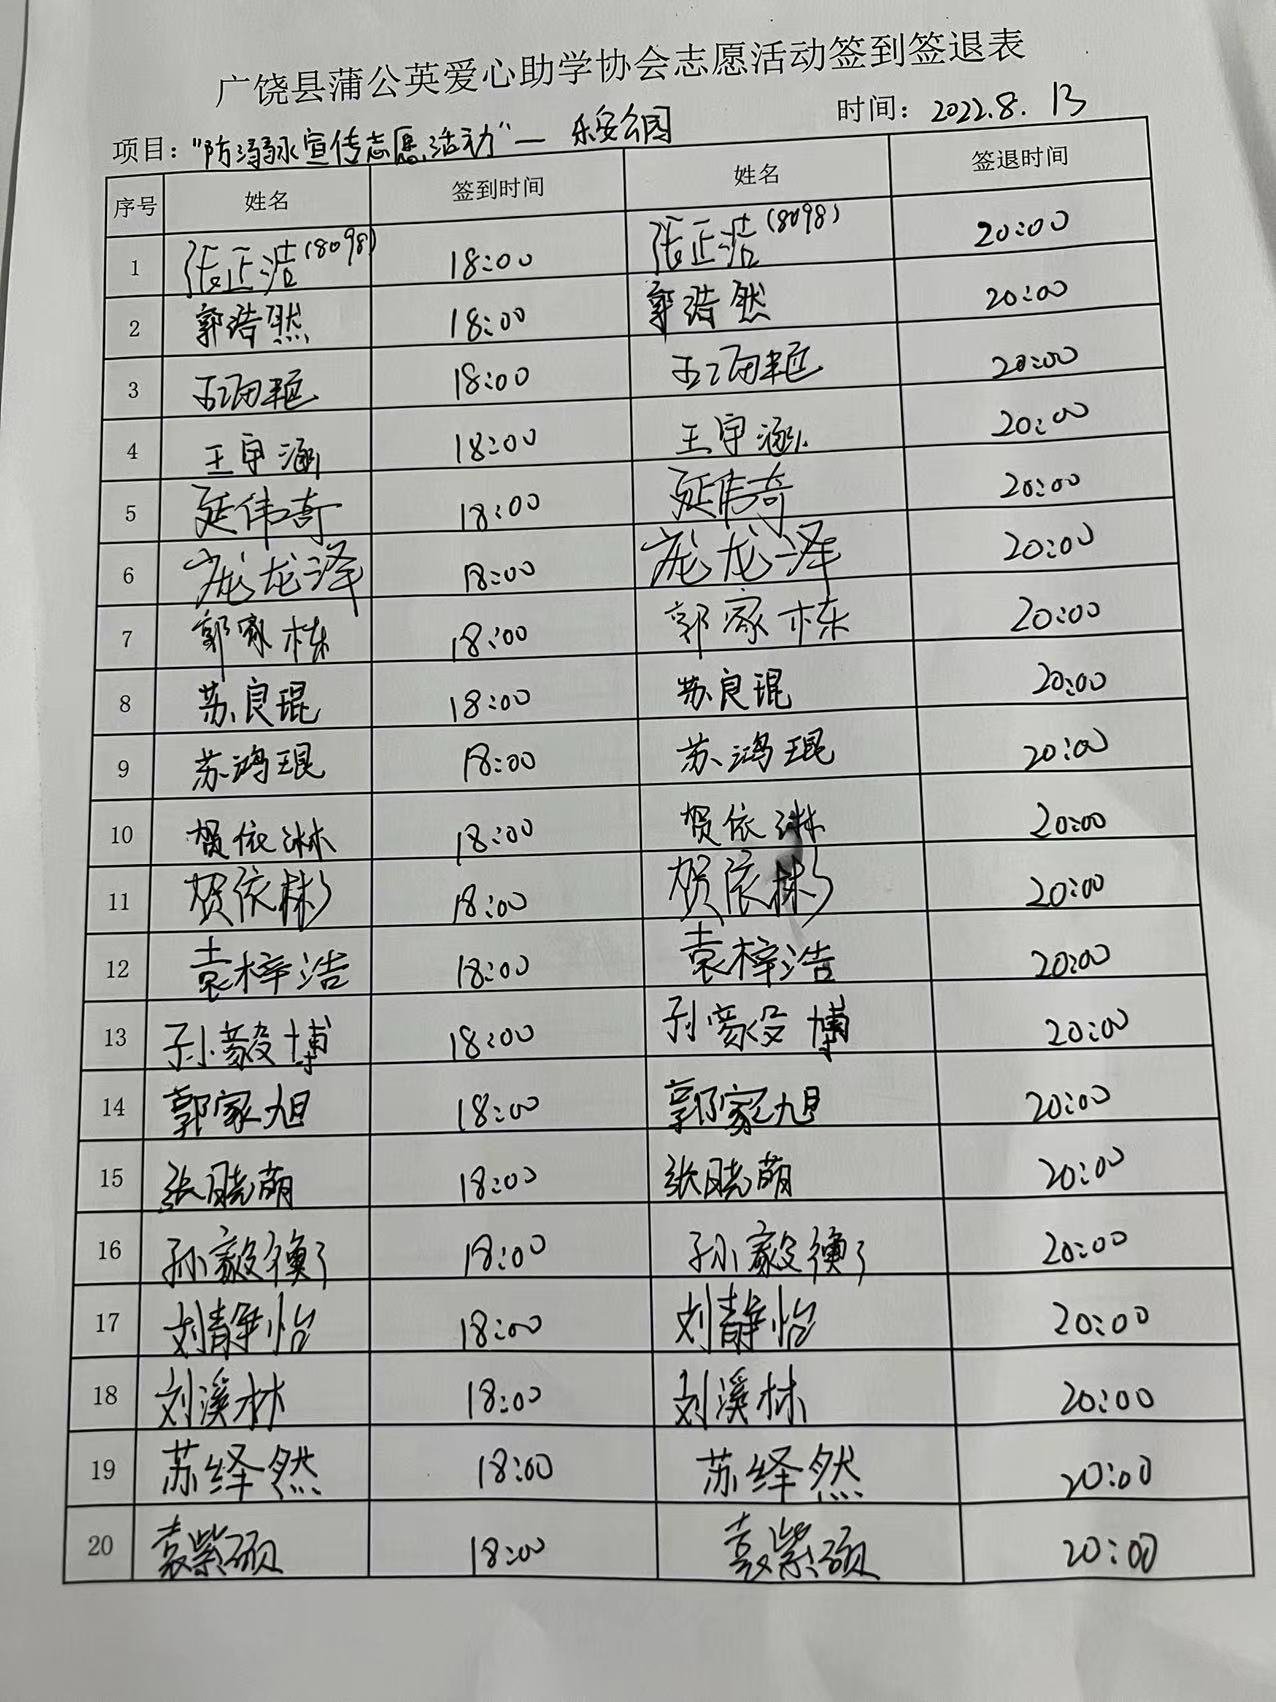 广饶县蒲公英爱心助学协会志愿活动签到签退表
项目：“防溺水宣传志愿活动”— 乐安公园 时间：2022.8.13
序号 姓名 签到时间 姓名 签退时间
1 张正浩(8098) 18:00 张正浩(8098) 20:00
2 郭浩然 18:00 郭浩然 20:00
3 18:00 20:00
4 王宇涵 18:00 王宇涵 20:00
5 延伟奇 18:00 延伟奇 20:00
6 庞龙泽 18:00 庞龙泽 20:00
7 郭家栋 18:00 郭家栋 20:00
8 苏良琨 18:00 苏良琨 20:00
9 苏鸿琨 18:00 苏鸿琨 20:00
10 贺依淋 18:00 贺依淋 20:00
11 贺依彬 18:00 贺依彬 20:00
12 袁梓浩 18:00 袁梓浩 20:00
13 孙毅博 18:00 孙毅博 20:00
14 郭家旭 18:00 郭家旭 20:00
15 张晓萌 18:00 张晓萌 20:00
16 孙毅衡 18:00 孙毅衡 20:00
17 刘静怡 18:00 刘静怡 20:00
18 刘溪林 18:00 刘溪林 20:00
19 苏绎然 18:00 苏绎然 20:00
20 袁紫硕 18:00 袁紫硕 20:00